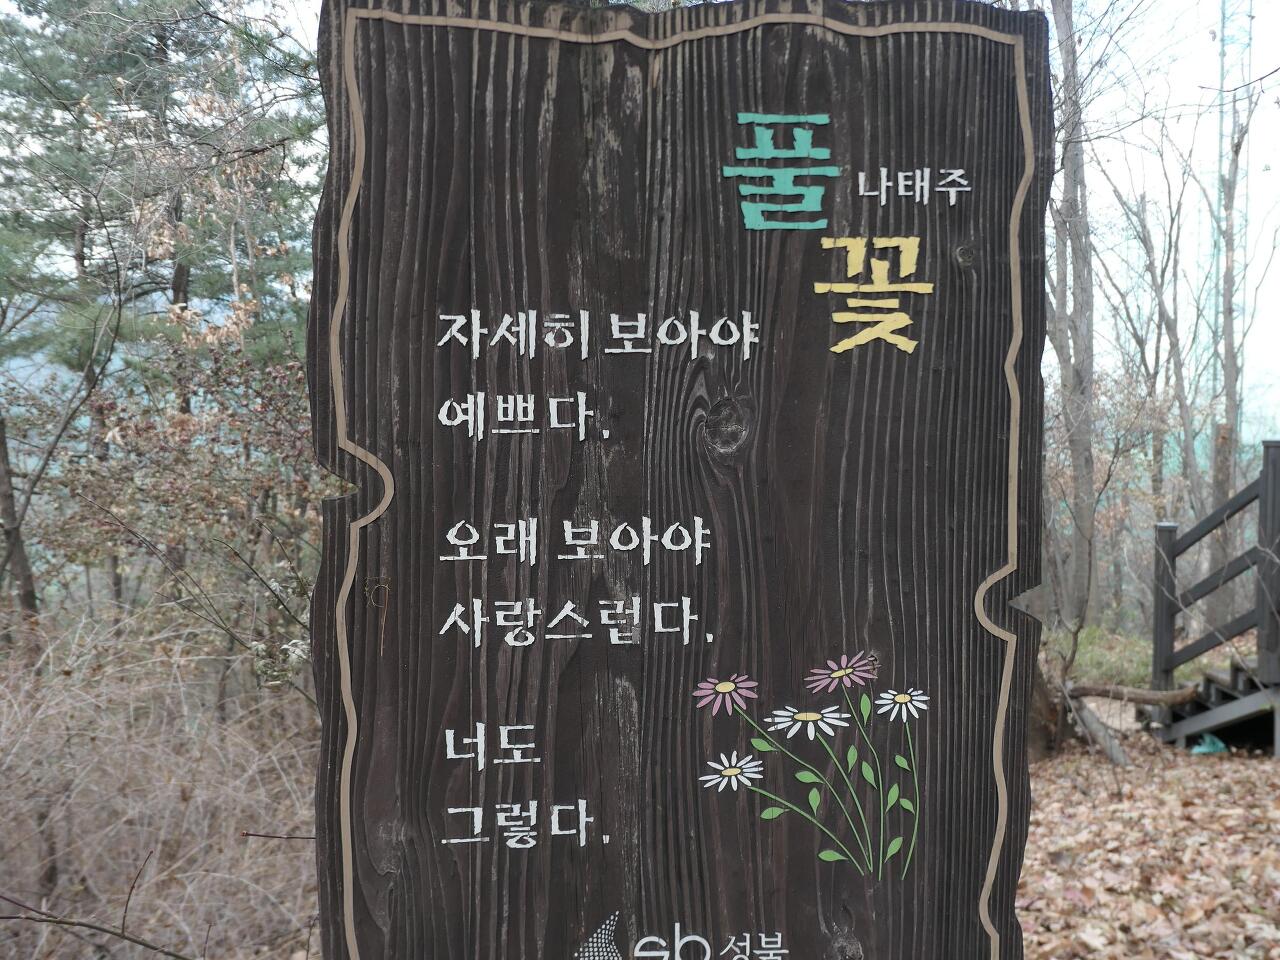 풀꽃
나태주
자세히 보아야
예쁘다.
오래 보아야
사랑스럽다.
너도
그렇다.
sb 성북